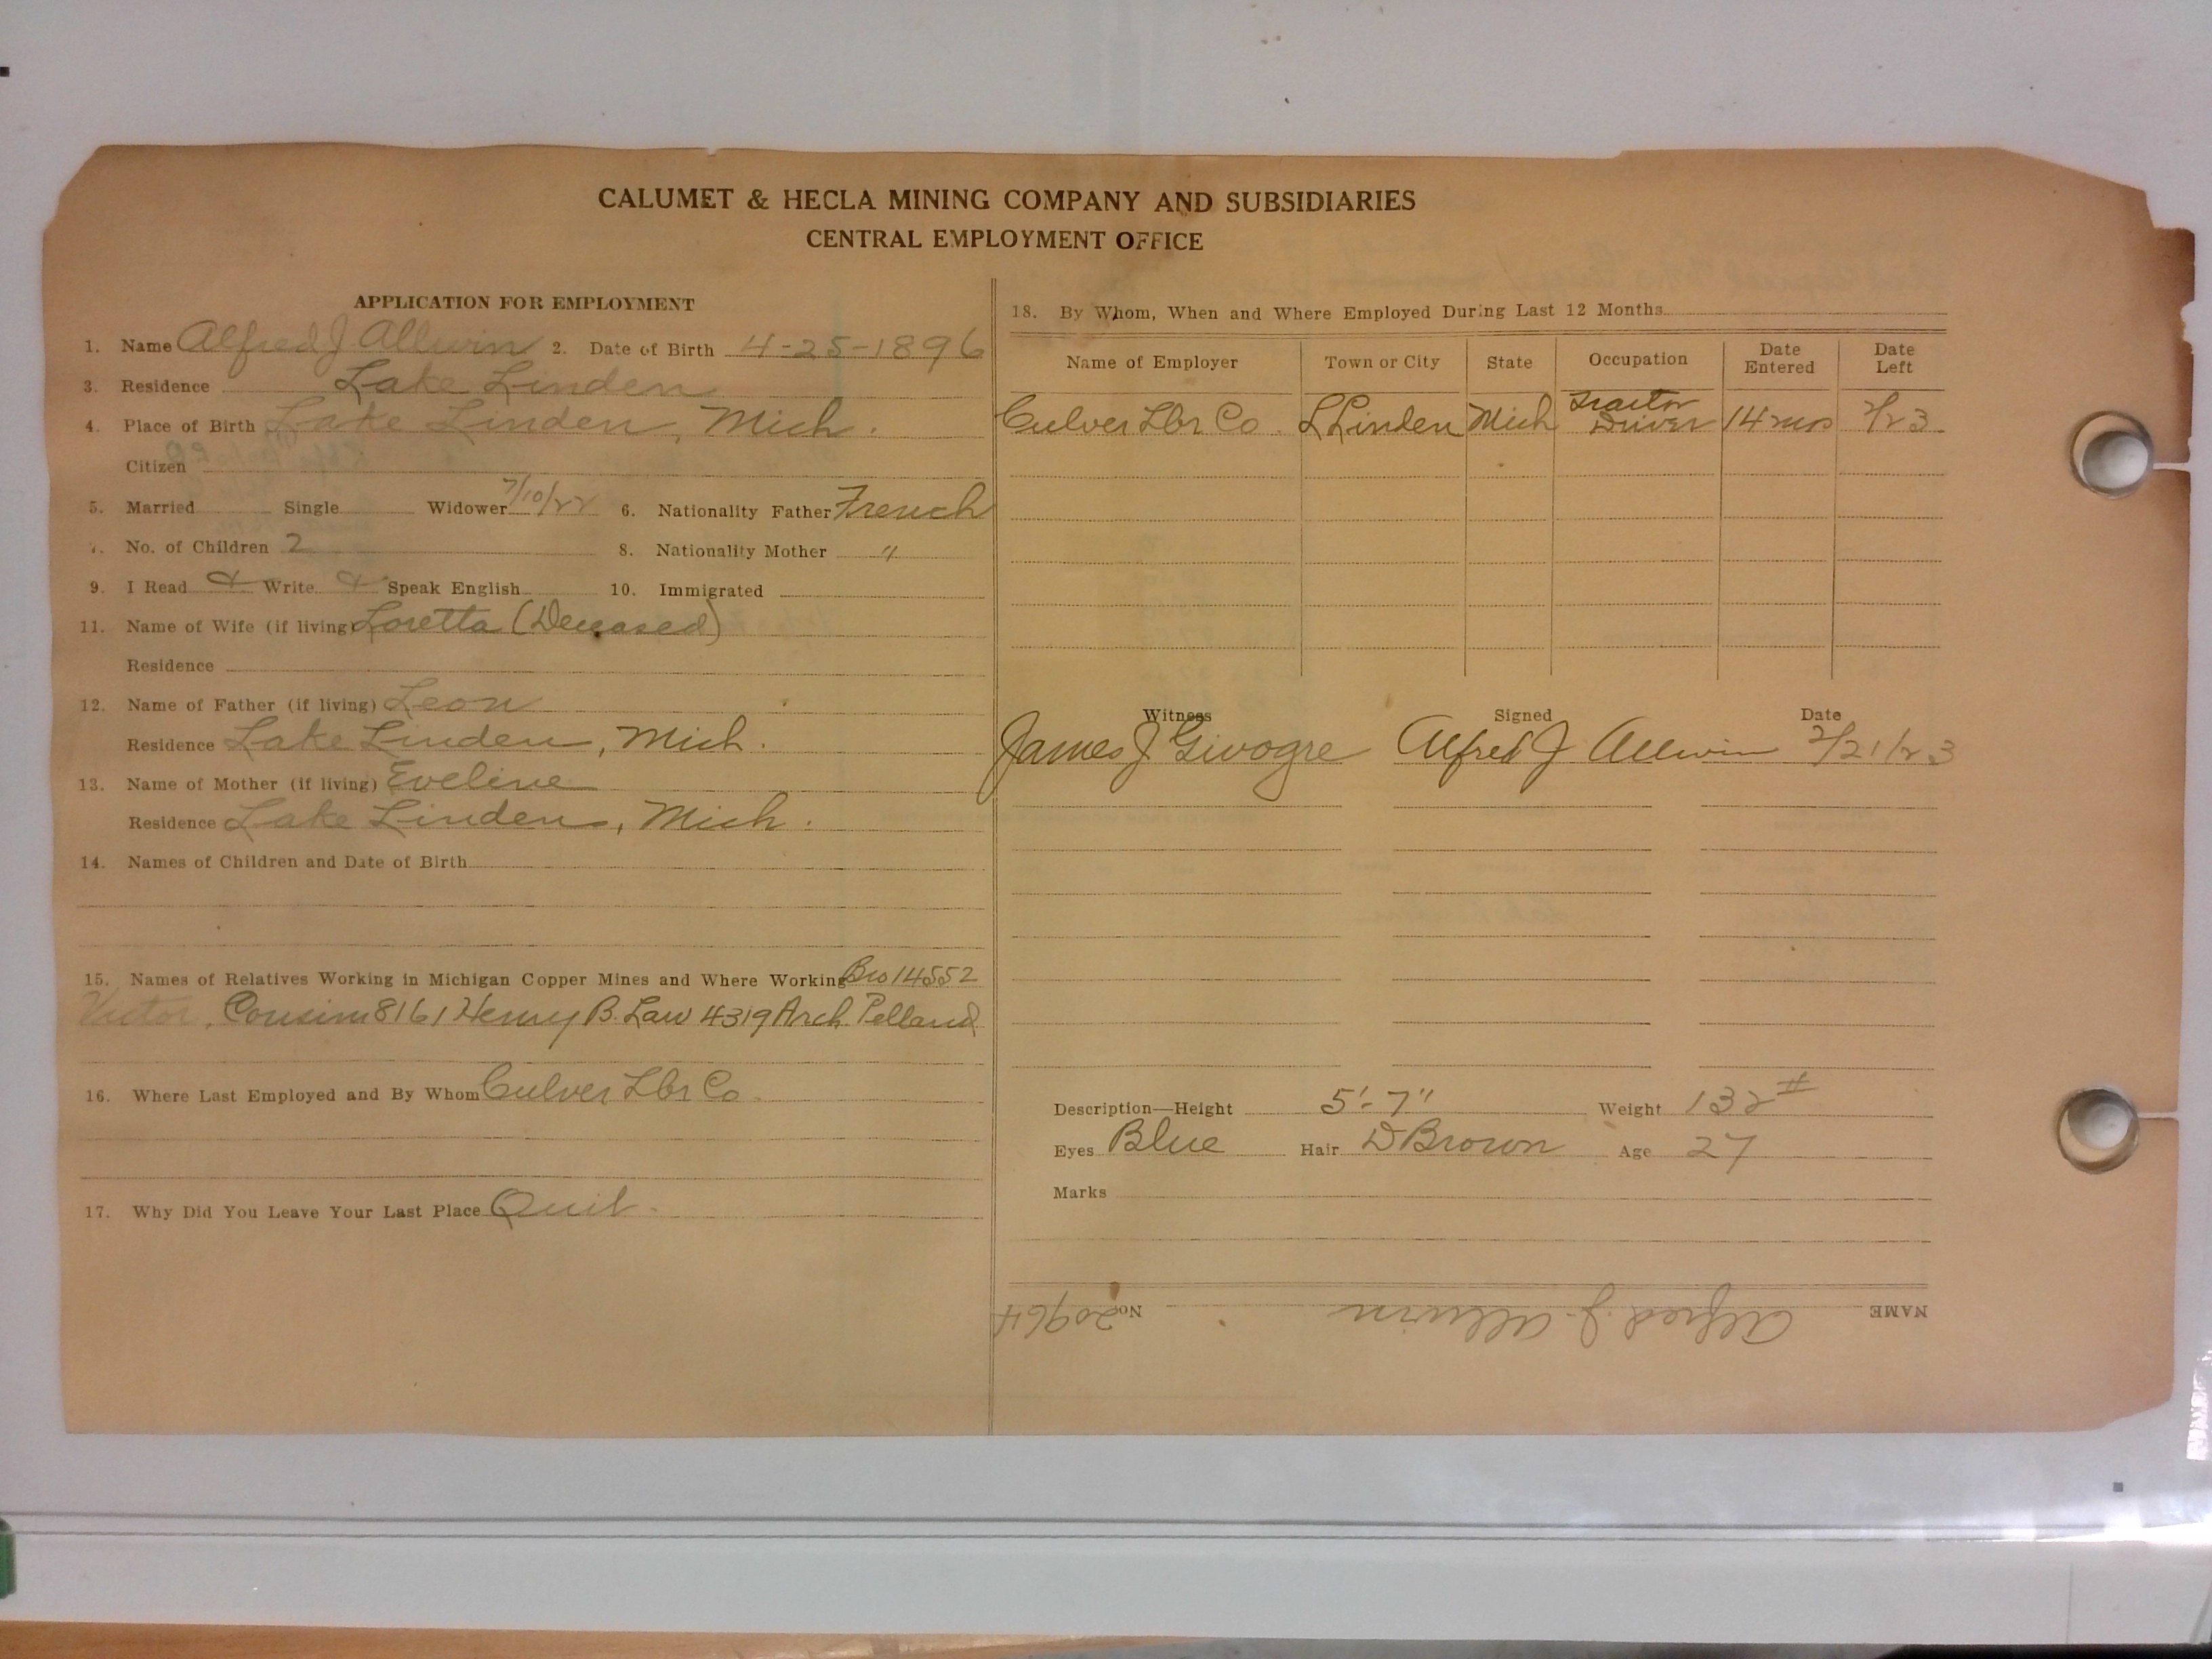 CALUMET & HECLA MINING COMPANY AND SUBSIDIARIES
CENTRAL EMPLOYMENT OFFICE
APPLICATION FOR EMPLOYMENT
1. Name Alfred J Allwin 2. Date of Birth 4-25-1896
3. Residence Lake Linden
4. Place of Birth Lake Linden, Mich.
Citizen
5. Married Single Widower 7/10/22 6. Nationality Father French
7. No. of Children 2 8. Nationality Mother "
9. I Read & Write & Speak English 10. Immigrated
11. Name of Wife (if living) Loretta (Deceased)
Residence
12. Name of Father (if living) Leon
Residence Lake Linden, Mich.
13. Name of Mother (if living) Eveline
Residence Lake Linden, Mich.
14. Names of Children and Date of Birth
15. Names of Relatives Working in Michigan Copper Mines and Where Working Bro 14552
Victor, Cousim 8161 Henry B. Law 4319 Arch. Pelland
16. Where Last Employed and By Whom Culver Lbr Co.
17. Why Did You Leave Your Last Place Quit.
18. By Whom, When and Where Employed During Last 12 Months
Name of Employer Town or City State Occupation Date Entered Date Left
Culver Lbr Co. L Linden Mich Tractor Driver 14 mos 2/23
Witness Signed Date
James J Givogre Alfred J Allwin 2/21/23
Description—Height 5'-7" Weight 132#
Eyes Blue Hair D Brown Age 27
Marks
NAME Alfred J. Allwin No. 20964